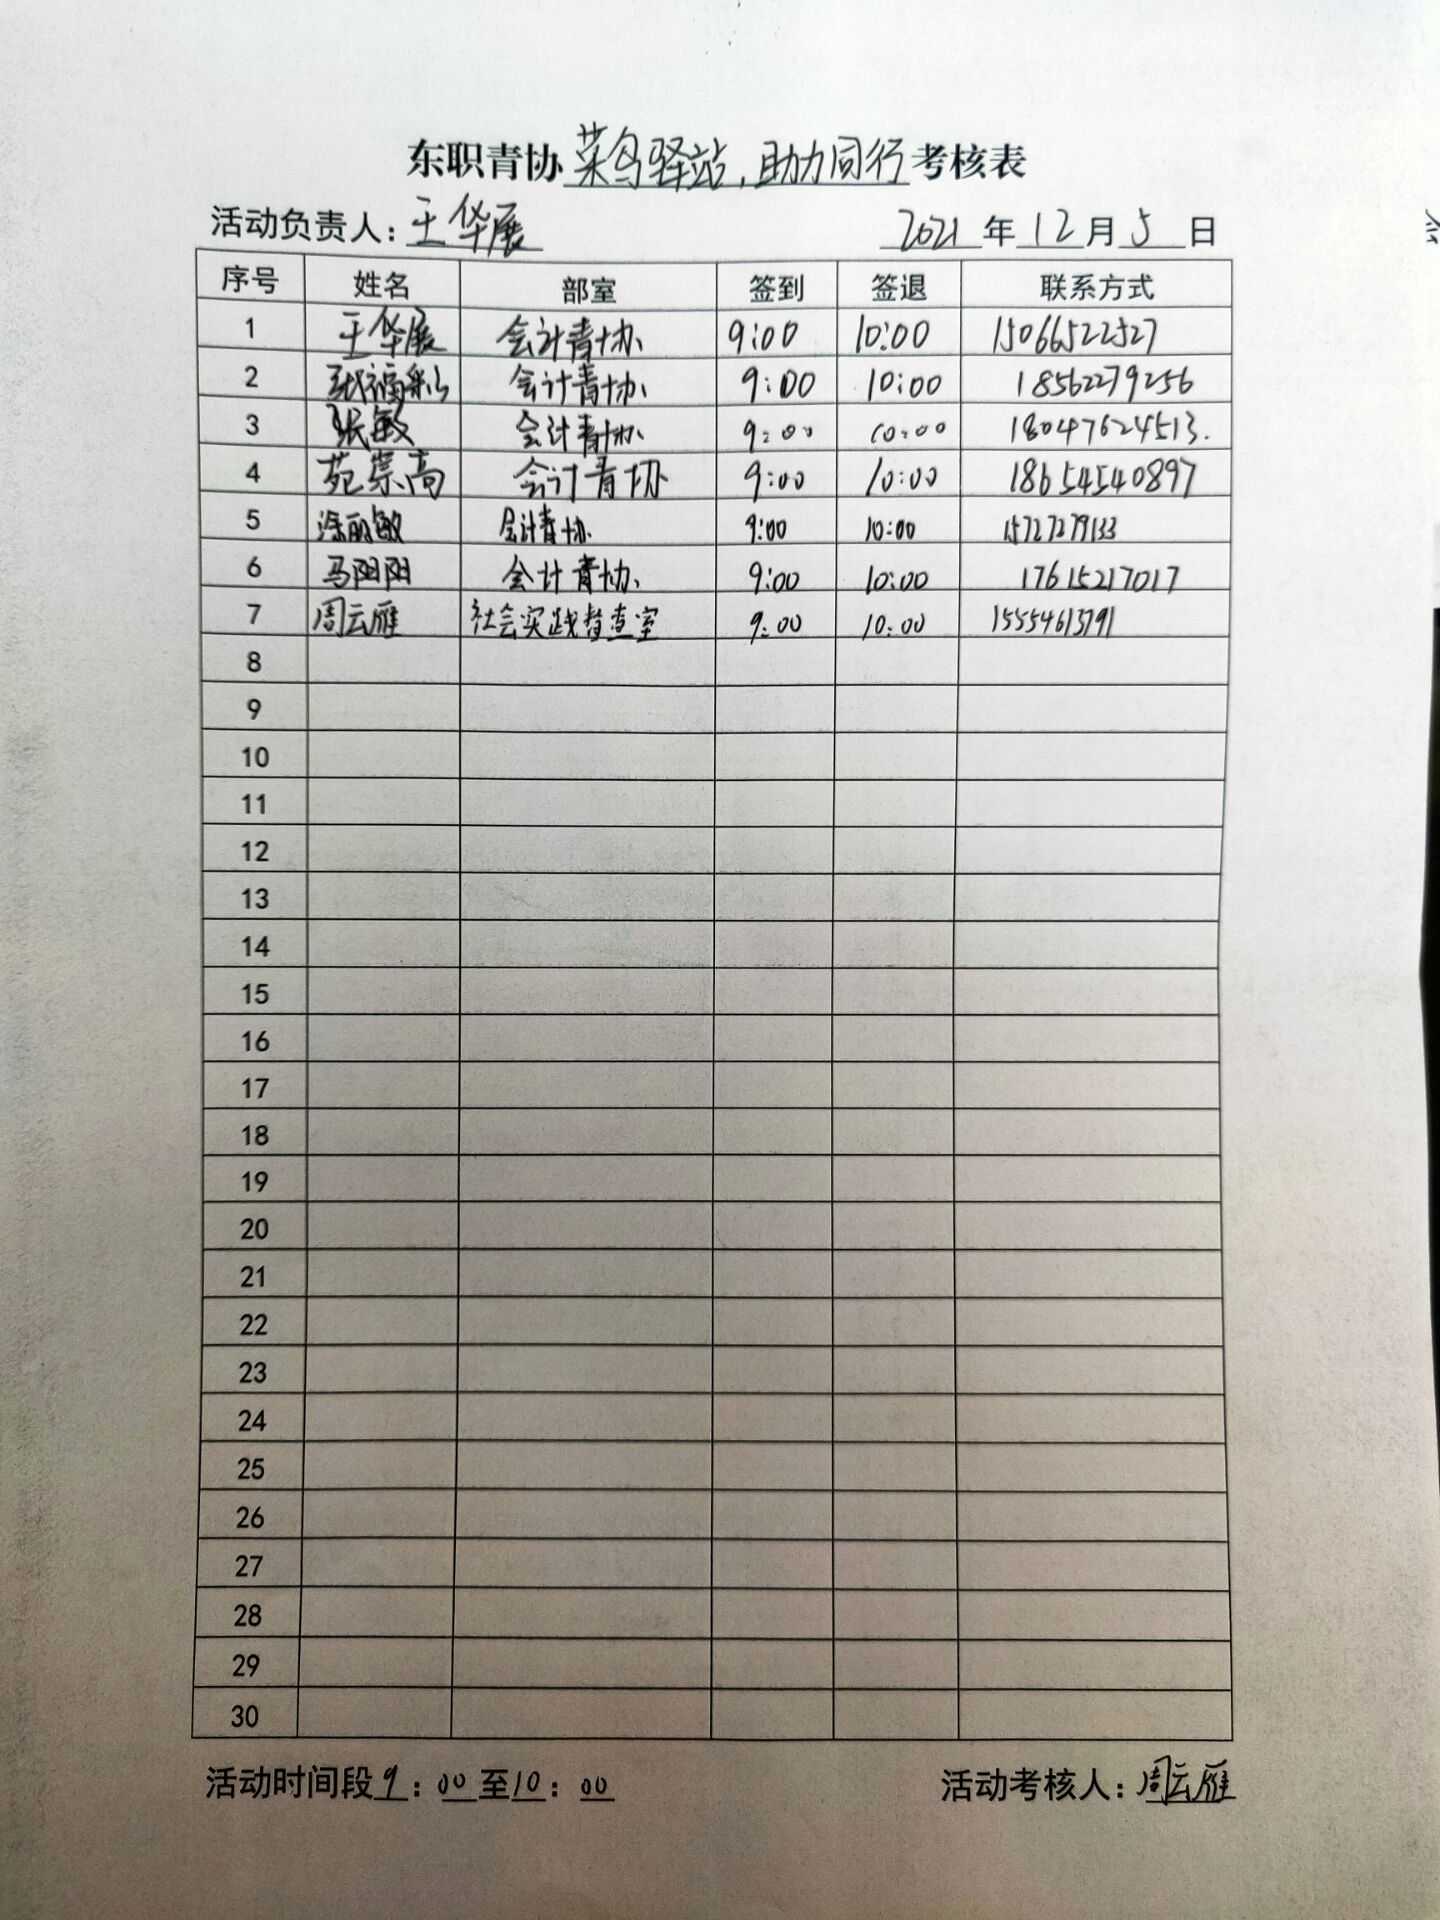 东职青协菜鸟驿站,助力同行考核表
活动负责人:王华展 2021年12月5日
序号 姓名 部室 签到 签退 联系方式
1 王华展 会计青协 9:00 10:00 15066522527
2 会计青协 9:00 10:00 18562279256
3 张敏 会计青协 9:00 10:00 18047624513.
4 苑崇高 会计青协 9:00 10:00 18654540897
5 涂丽敏 会计青协 9:00 10:00 15727279133
6 马阳阳 会计青协 9:00 10:00 17615217017
7 周云雁 社会实践督查室 9:00 10:00 15554613791
8
9
10
11
12
13
14
15
16
17
18
19
20
21
22
23
24
25
26
27
28
29
30
活动时间段9:00至10:00 活动考核人:周云雁